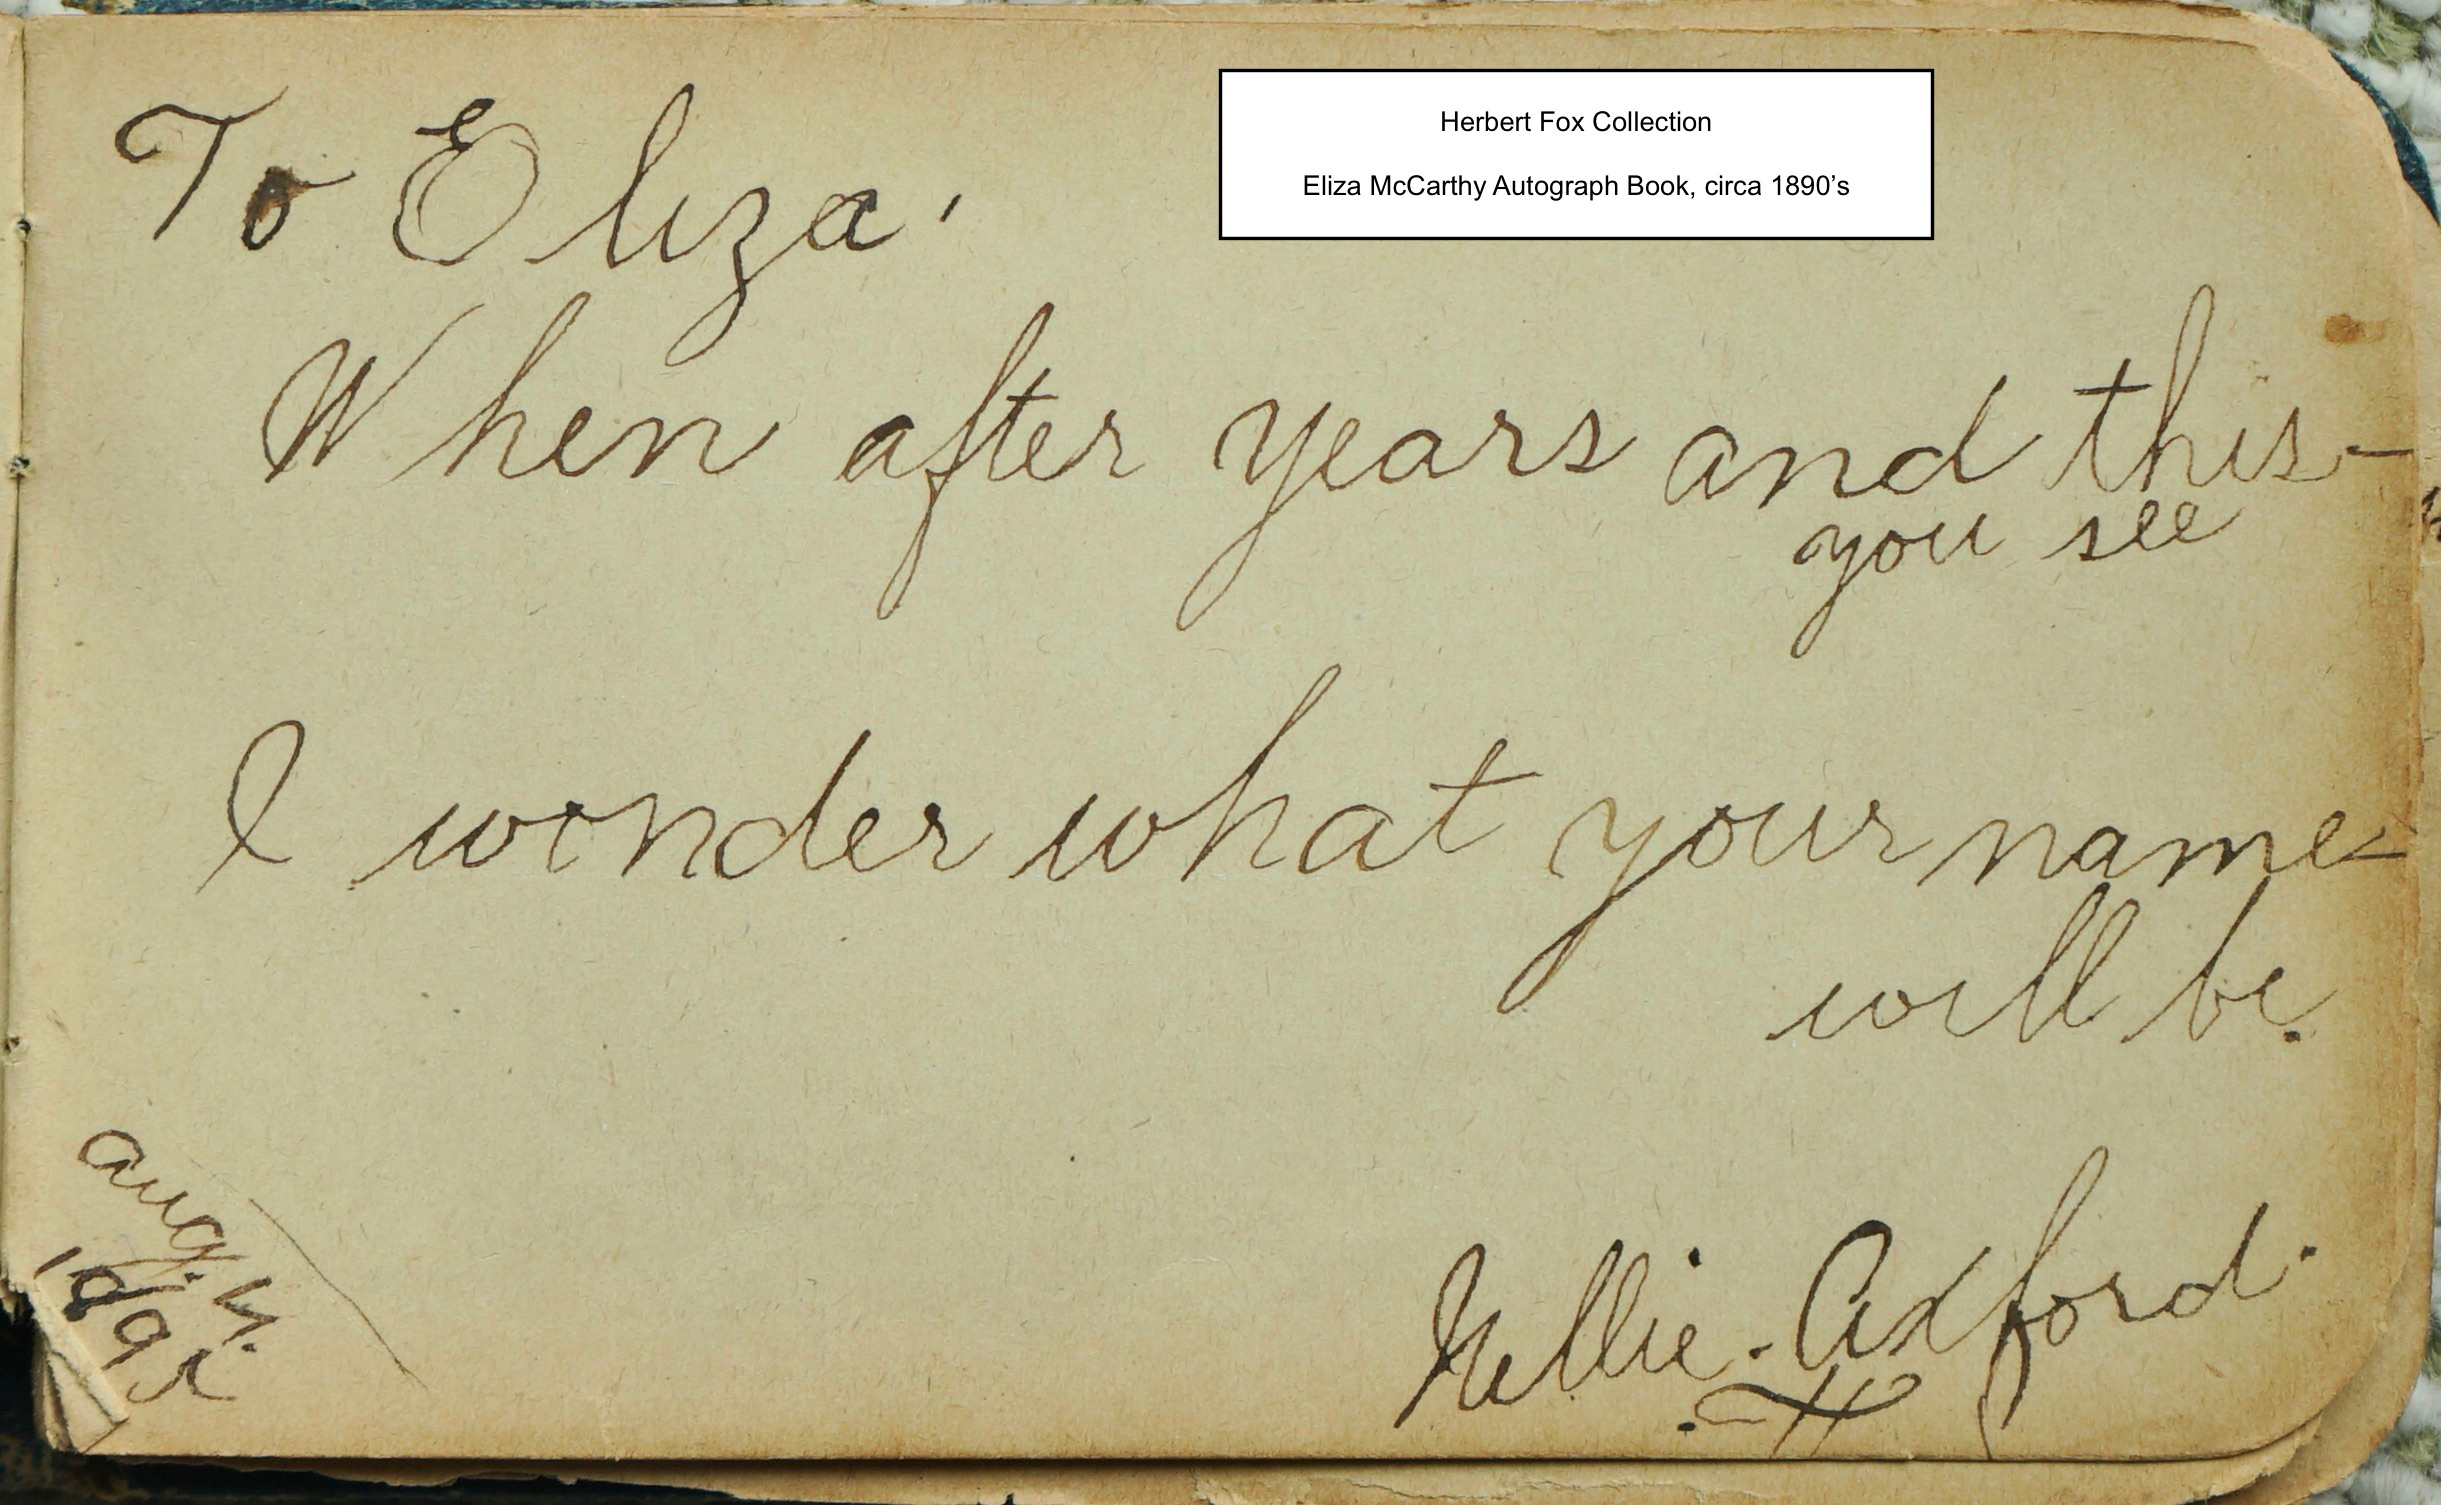 Herbert Fox Collection
Eliza McCarthy Autograph Book, circa 1890’s
To Eliza.
When after years and this
you see
I wonder what your name
will be.
Nellie. Axford.
Aug.